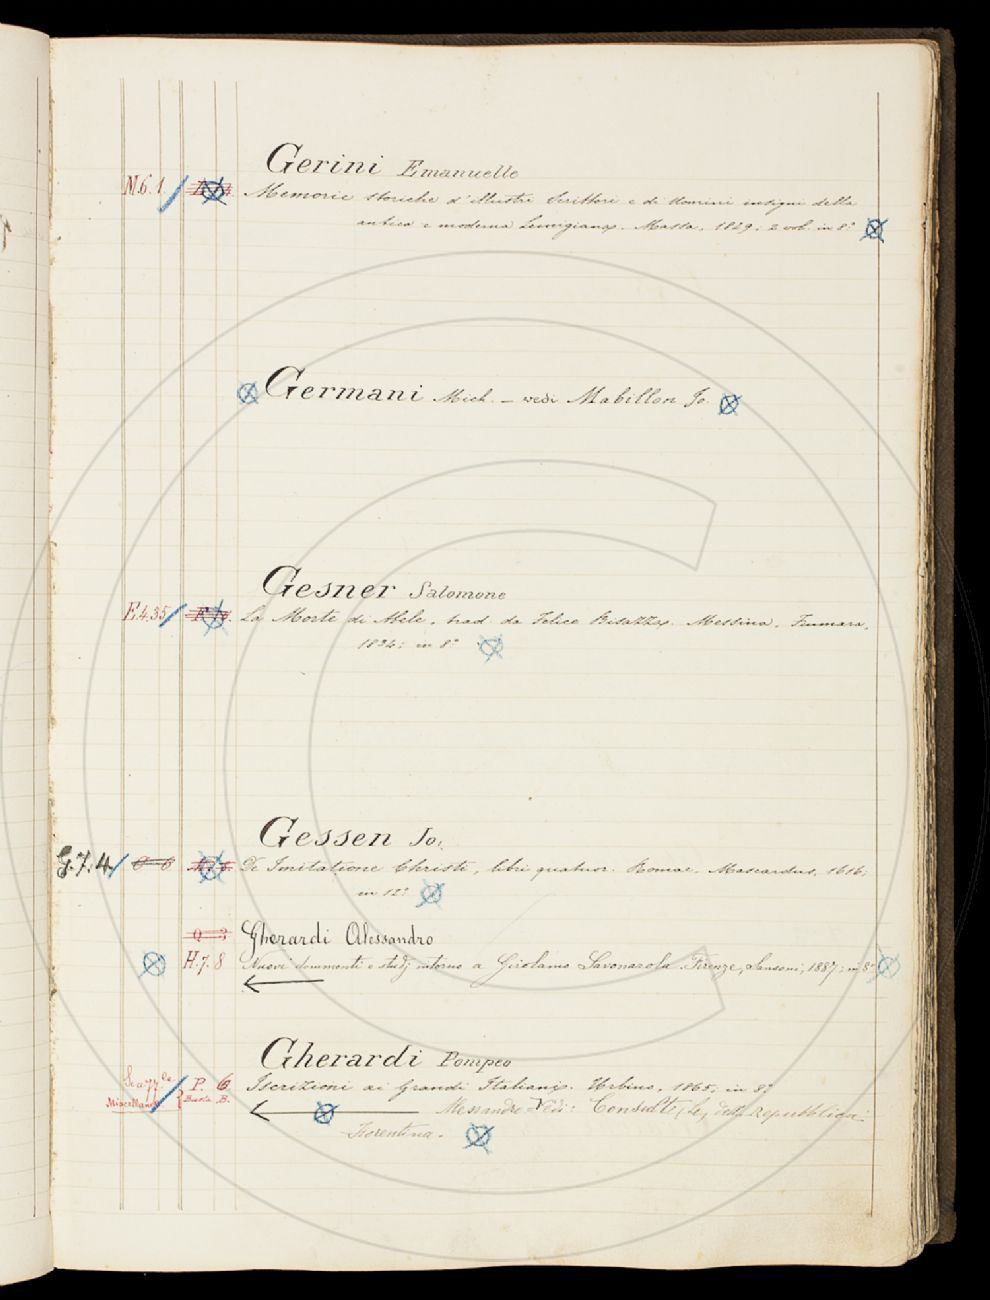 Gerini Emanuelle
N.6.1. Memorie storiche d'illustri Scrittori e di Uomini insigni della
antica e moderna Lunigiana. Massa, 1829; 2 vol. in 8°
Germani Mich. — vedi Mabillon Jo.
Gesner Salomone
F.4.35 La Morte di Abele, trad. da Felice Bisazza. Messina, Fiumara,
1834; in 8°
Gessen Jo.
G.7.4. De Imitatione Christi, libri quatuor. Romae, Mascardus, 1616;
in 12°
Q 3 Gherardi Alessandro
H.7.8 Nuovi documenti e studj intorno a Girolamo Savonarola. Firenze, Sansoni, 1887; in 8°
Gherardi Pompeo
P. 6 Iscrizioni ai Grandi Italiani. Urbino, 1865, in 8°
Miscellanea Busta B.
Alessandro Vedi: Consulte (le) della repubblica
Fiorentina.